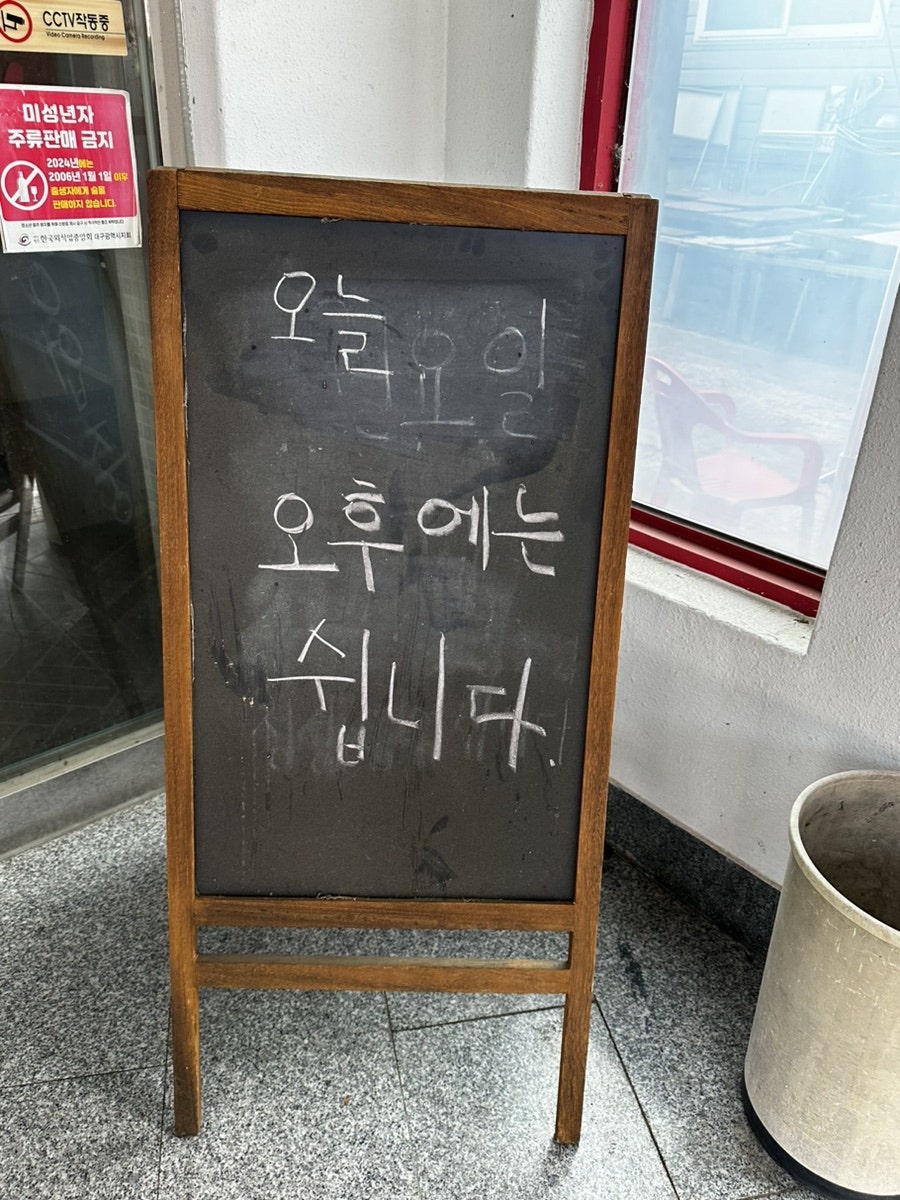 CCTV작동중
Video Camera Recording
미성년자
주류판매 금지
2024년에는
2006년 1월 1일 이후
출생자에게 술을
판매하지 않습니다.
한국외식업중앙회 대구광역시지회
오늘
요일
오후에는
쉽니다.